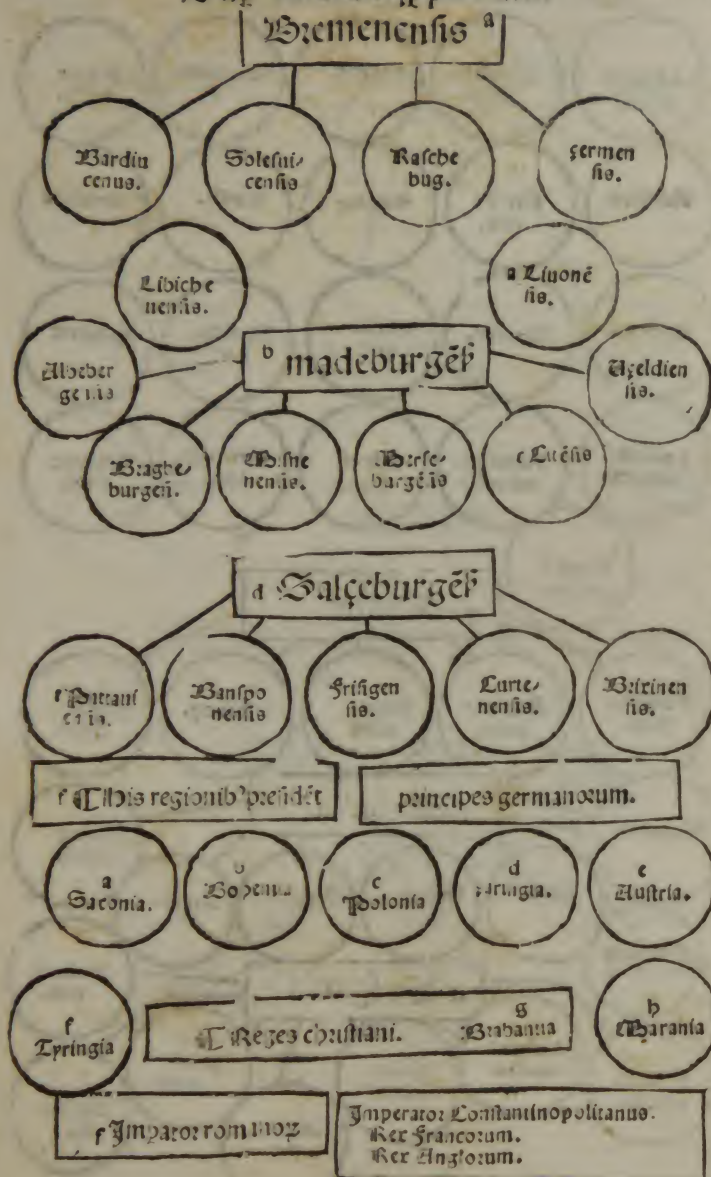 Bremenensis a
Bardiu
cenus.
Solesui⸗
censis
Rasche
bug.
çermen
sis.
Libiche
nensis.
a Liuonẽ
sis.
b madeburgẽß
Alveber
gensis
Uçeldien
sis.
Braghe⸗
burgeñ.
Misne
nensis.
Merse⸗
burgẽsis
c Lucẽsis
d Salçeburgẽß
nensis
Frisigen
sis.
Curte⸗
nensis.
Brixinen
sis.
f ¶ His regionibꝰ presidẽt
principes germanorum.
a
Saxonia.
b
c
Polonia
d
e
Austria.
f
Tyringia
¶ Reges christiani.
g
Brabantia
h
Marania
f Imperator romanoꝝ
Imperator Constantinopolitanus.
Rex Francorum.
Rex Anglorum.